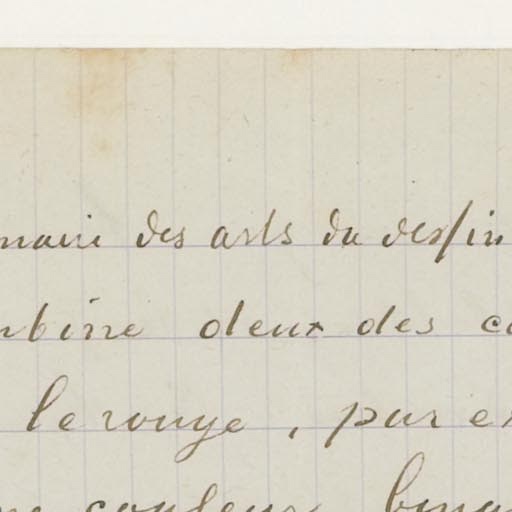 maire des arts du dessin
mbine deux des co
le rouge, par ex
ne couleur bina